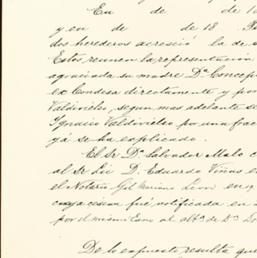 En de de 18
y en de de 18
dos herederos acreció la de
Estos reunen la representación
agenciada su madre Dª Concep
ex Condesa directamente y por
Valdivielso, segun mas adelante se
Ygnacio Valdivielso por una frac
yá se ha explicado.
El Sr Dn Salvador Malo c
al Sr Lic D. Eduardo Viñas en
el Notario Gil Mariano Leon en 19
cuya cesion fué notificada en
por el mismo Leon al
De lo expuesto resulta que